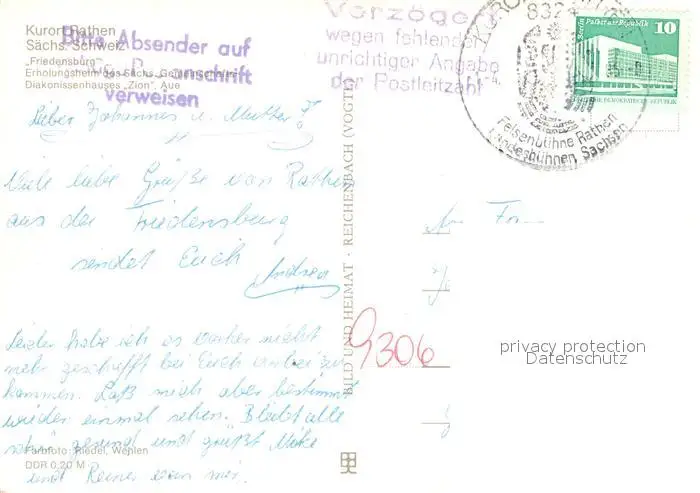 Kurort Rathen
Sächs. Schweiz
„Friedensburg“
Erholungsheim des Sächs. Gemeinschafts-
Diakonissenhauses „Zion“, Aue
Bitte Absender auf
Postanschrift
verweisen
Verzöger
wegen fehlender
unrichtiger Angabe
der Postleitzahl
KURORT
832
Felsenbühne Rathen
Landesbühnen Sachsen
Berlin, Palast der Republik
10
DEUTSCHE DEMOKRATISCHE REPUBLIK
Lieber Johannes u. Mutter!
Viele liebe Grüße von Rathen
aus der Friedensburg
sendet Euch
Andrea
Leider habe ich es vorher nicht
mehr geschafft bei Euch vorbei zu
kommen. Laß mich aber bestimmt
wieder einmal sehen. Bleibt alle
schön gesund und grüßt Mike
und Reiner von mir.
An Fam
9306
BILD UND HEIMAT · REICHENBACH (VOGTL
privacy protection
Datenschutz
Farbfoto: Riedel, Wehlen
DDR 0,20 M